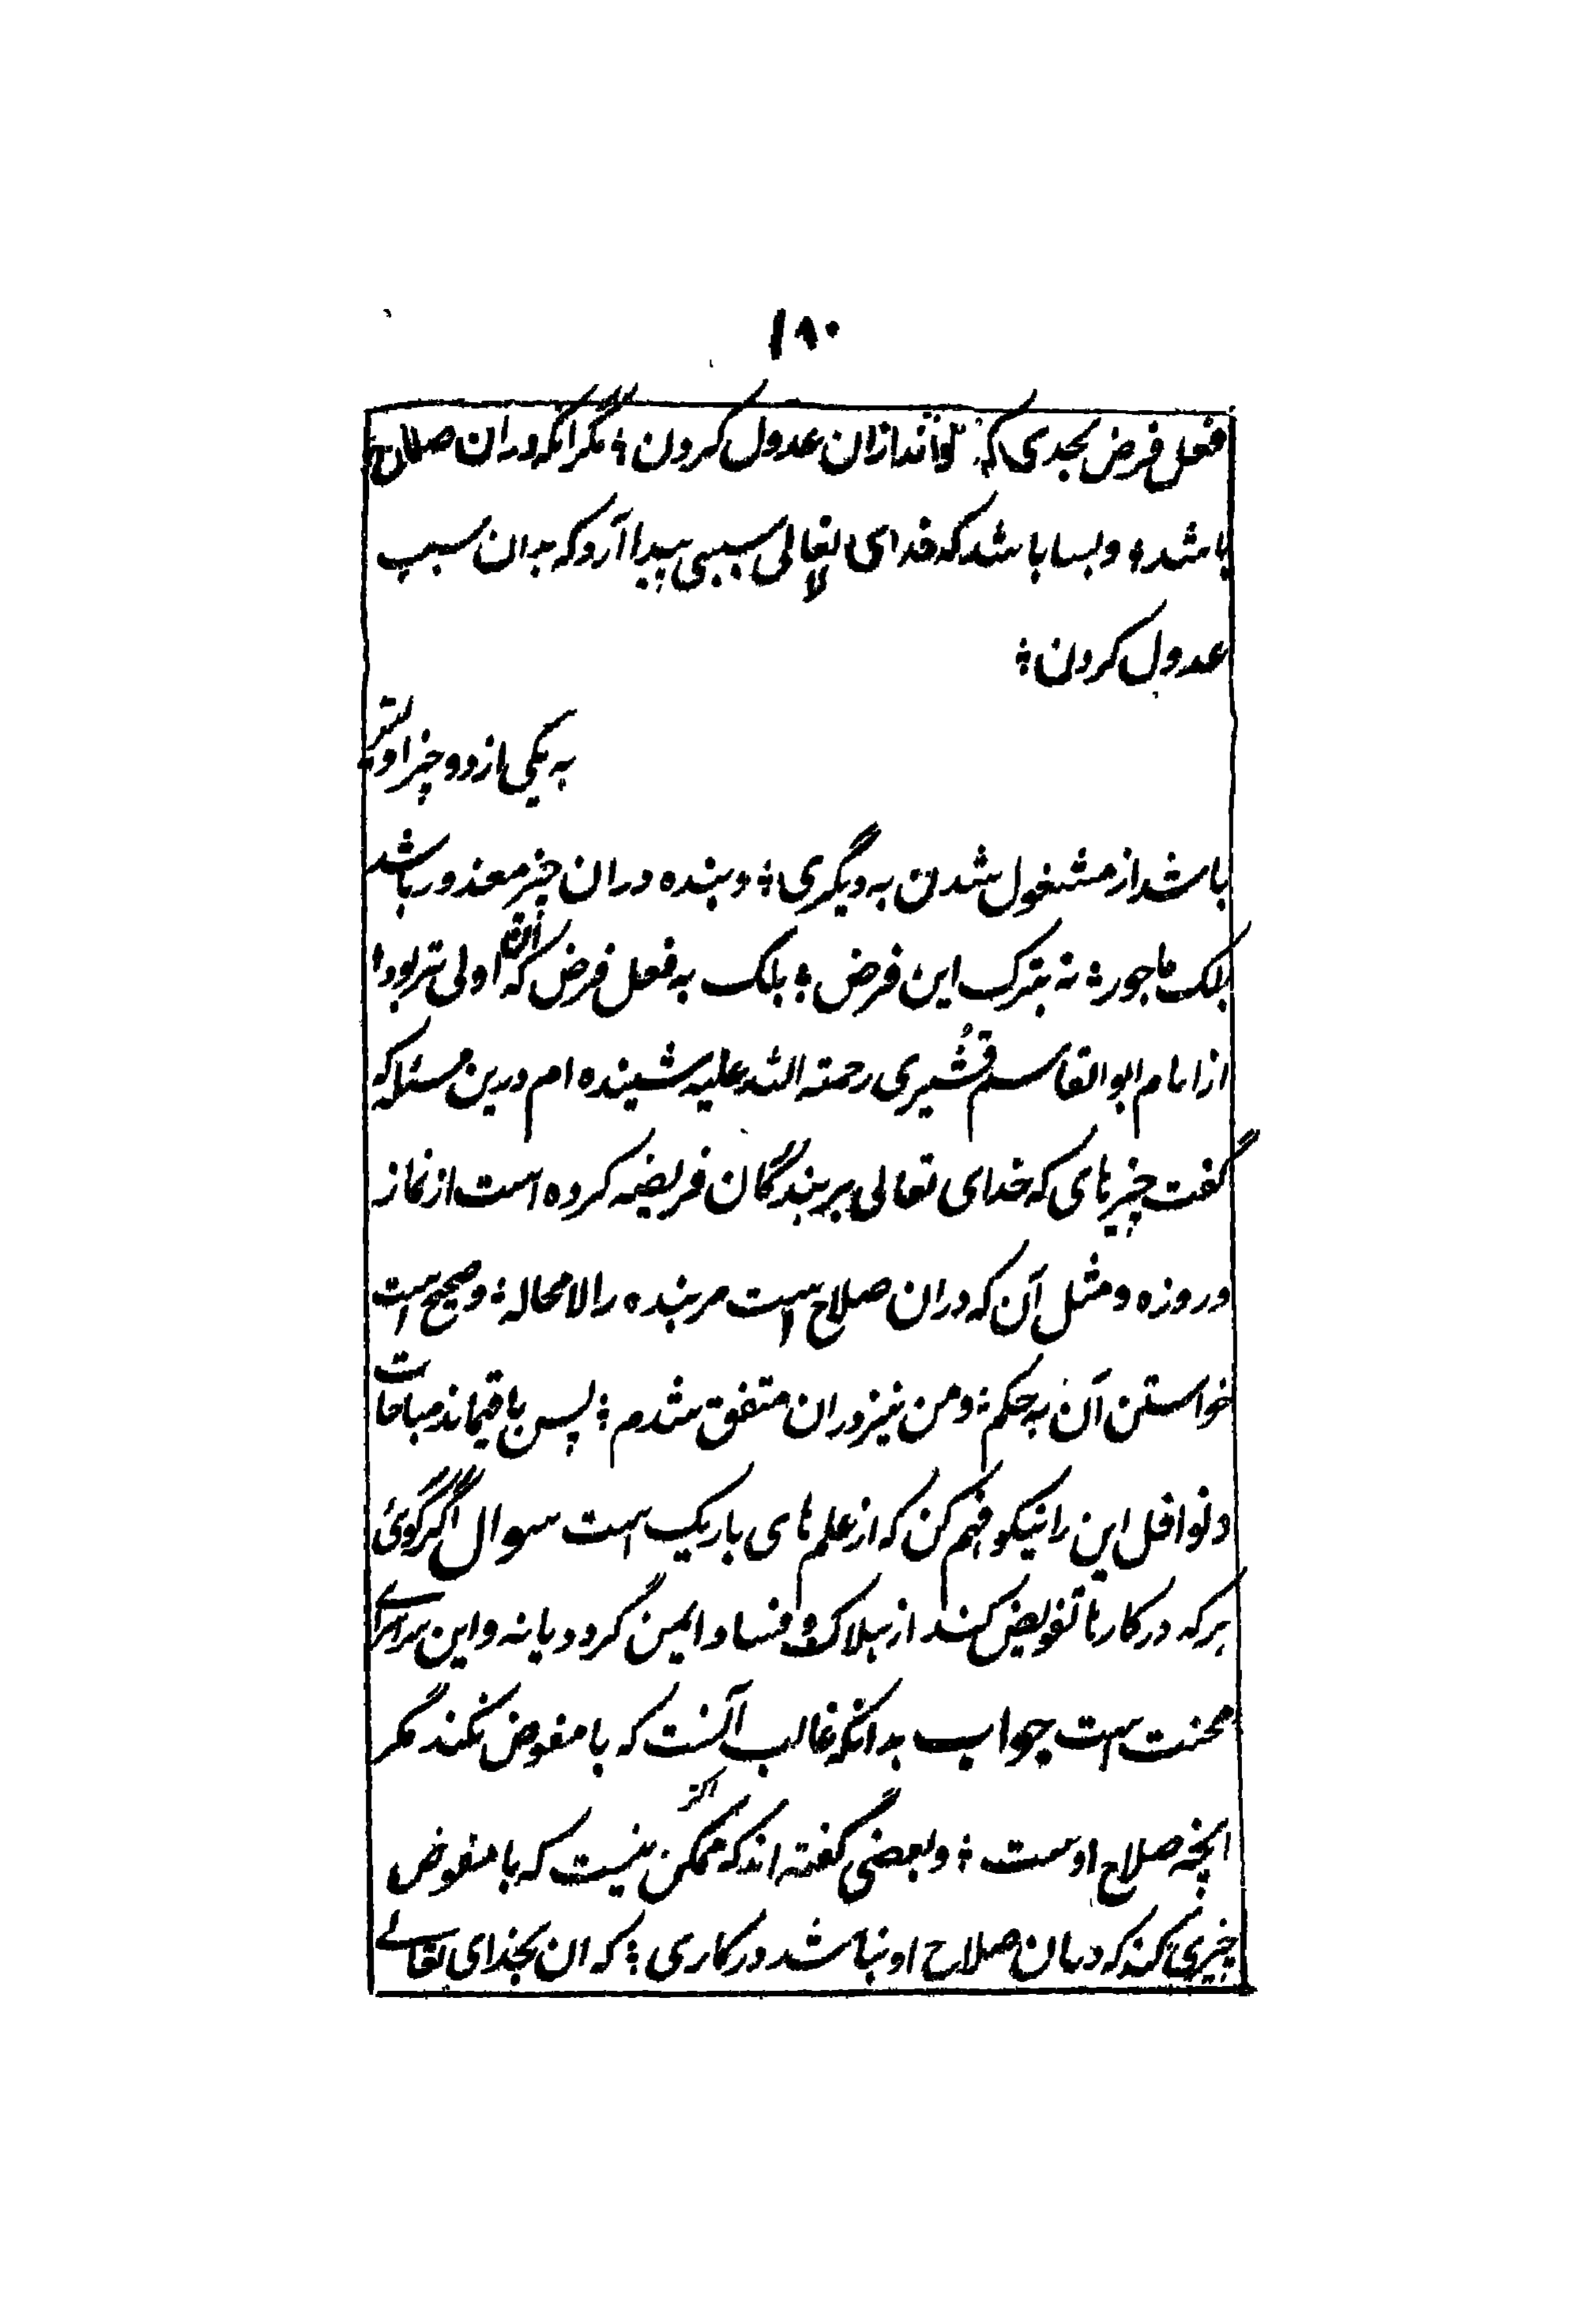 ۱۸۰
فعل فرض بجدی که نتواند ازان عدول کردن؛ مگر انکه دران صلاح
باشد؛ و بسا باشد که خدای تعالی سببی پیدا آرد که بدان سبب
عدول کردن؛
به یکی از دو چیز اولیتر
باشد از مشغول شدن به دیگری؛ و بنده دران چیز معذور باشد
بلک ماجور؛ نه بترک این فرض؛ بلک به فعل فرض که آن اولی تر بود؛
از امام ابوالقاسم قُشیری رحمته الله علیه شینده ام درین مسئله که
گفت چیزهای که خدای تعالی بر بندگان فریضه کرده است از نماز
و روزه و مثل آن که دران صلاح است مر بنده را لا محاله؛ و صحیح است
خواستن آن به حکم؛ و من نیز دران متفق شدم؛ پس باقیماند مباحات
و نوافل این را نیکو فهم کن که از علم های باریک است سوال اگر گوئی
هر که در کارها تفویض کند از هلاک و فساد ایمن گردد یا نه و این سرای
محنت است جواب بدانکه غالب آنست که با مفوض نکند مگر
انچه صلاح اوست؛ و بعضی گفته اند که ممکن نیست که با مفوض
چیزی کند که دران صلاح او نباشد در کاری؛ که ان بخدای تعالے